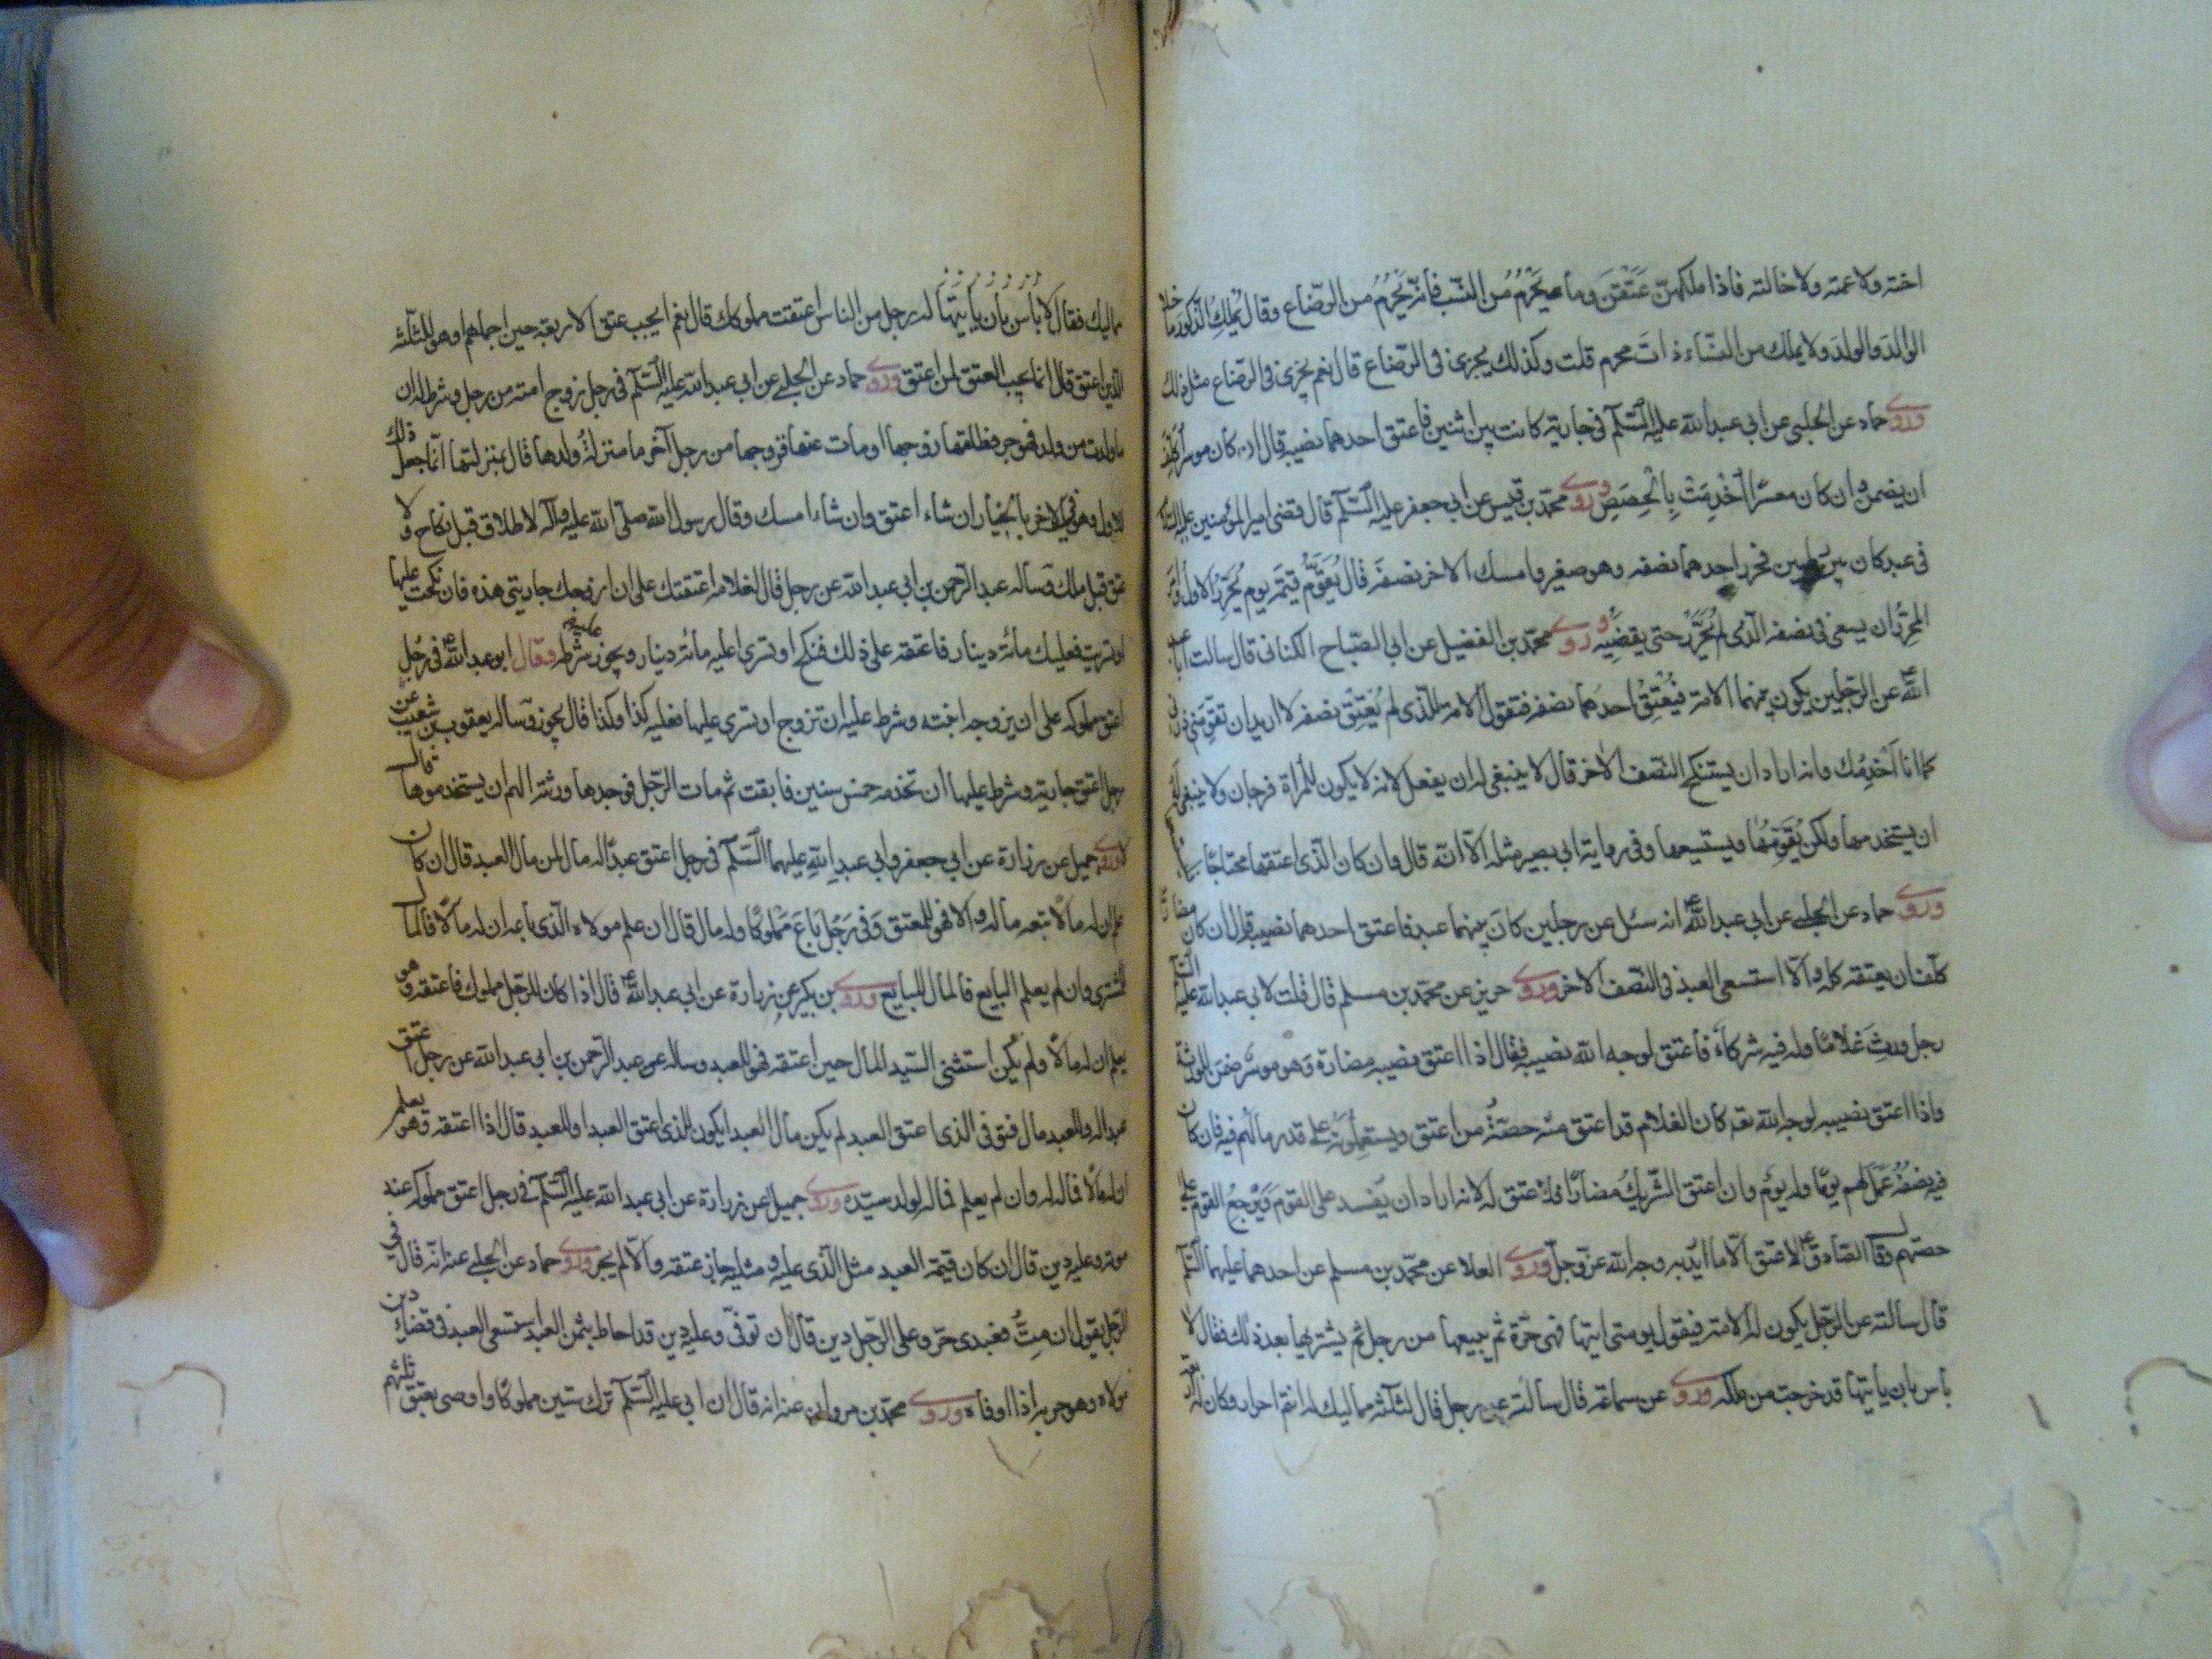 اخته ولا عمته ولا خالته فاذا ملكهن عتقن وما يحرم من النسب فانه يحرم من الرضاع وقال يملك الذكور ما خلا
الوالد والولد ولا يملك من النساء ذات محرم قلت وكذلك يجرى فى الرضاع قال نعم يجرى فى الرضاع مثل ذلك
وروى حماد عن الحلبى عن ابى عبد الله عليه السلام فى جارية كانت بين اثنين فاعتق احدهما نصيبه قال ان كان موسرا كلف
ان يضمن وان كان معسرا اخدمت بالحصص وروى محمد بن قيس عن ابى جعفر عليه السلام قال قضى امير المؤمنين عليه السلام
فى عبد كان بين رجلين فحرر احدهما نصفه وهو صغير وامسك الاخر نصفه قال يقوم قيمته يوم حرر الاول وامر
المحرر ان يسعى فى نصفه الذى لم يحرر حتى يقضيه وروى محمد بن الفضيل عن ابى الصباح الكنانى قال سالت ابا عبد
الله ع عن الرجلين يكون بينهما الامة فيعتق احدهما نصفه فتقول الامة للذى لم يعتق نصفه لا اريد ان تقومنى ذرنى
كما انا اخدمك وانه اراد ان يستنكح النصف الاخر قال لا ينبغى له ان يفعل لانه لا يكون للمراة فرجان ولا ينبغى له
ان يستخدمها ولكن يقومها ويستسعيها وفى رواية ابى بصير مثله الا انه قال وان كان الذى اعتقها محتاجا
وروى حماد عن الحلبى عن ابى عبد الله ع انه سئل عن رجلين كان بينهما عبد فاعتق احدهما نصيبه قال ان كان مضارا
كلف ان يعتقه كله والا استسعى العبد فى النصف الاخر وروى حريز عن محمد بن مسلم قال قلت لابى عبد الله عليه السلام
رجل ورث غلاما وله فيه شركاء فاعتق لوجه الله نصيبه فقال اذا اعتق نصيبه مضارة وهو موسر ضمن للورثة
واذا اعتق نصيبه لوجه الله تعه كان الغلام قد اعتق منه حصة من اعتق ويستعملونه على قدر مالهم فيه فان كان
فيه نصفه عمل لهم يوما وله يوم وان اعتق الشريك مضارا فلا عتق له لانه اراد ان يفسد على القوم ويرجع القوم على
حصتهم وقال الصادق ع لا عتق الا ما اريد به وجه الله عز وجل وروى العلا عن محمد بن مسلم عن احدهما عليهما السلم
قال سالته عن الرجل يكون له الامة فيقول يوم متى اتيتها فهى حرة ثم يبيعها من رجل ثم يشتريها بعد ذلك فقال لا
باس بان ياتيها قد خرجت من ملكه وروى عن سماعة قال سالته عن رجل قال لثلثة مماليك له انتم احرار وكان له اربعة
مماليك فقال لا باس بان ياتيها له رجل من الناس اعتقت مملوكك قال نعم ايجب عتق الاربعة حين اجملهم او هو للثلثة
الذين اعتق قال انما يجب العتق لمن اعتق وروى حماد عن الحلبى عن ابى عبد الله عليه السلام فى رجل زوج امته من رجل وشرط له ان
ما ولدت من ولد فهو حر فطلقها زوجها او مات عنها فزوجها من رجل آخر ما منزلة ولدها قال بمنزلتها انما جعل ذلك
للاول وهو فى الاخر بالخيار ان شاء اعتق وان شاء امسك وقال رسول الله صلى الله عليه وآله لا طلاق قبل نكاح ولا
عتق قبل ملك وساله عبد الرحمن بن ابى عبد الله عن رجل قال لغلامه اعتقتك على ان ازوجك جاريتى هذه فان نكحت عليها
او تسريت فعليك مائة دينار فاعتقه على ذلك فنكح او تسرى اعليه مائة دينار ويجوز شرطه وقال ابو عبد الله ع فى رجل
اعتق مملوكه على ان يزوجه ابنته وشرط عليه ان تزوج او تسرى عليها فعليه كذا وكذا قال يجوز وساله يعقوب بن شعيب عن
رجل اعتق جاريته وشرط عليها ان تخدمه خمس سنين فابقت ثم مات الرجل فوجدها ورثته الهم ان يستخدموها قال
لا وروى جميل عن زرارة عن ابى جعفر وابى عبد الله عليهما السلم فى رجل اعتق عبدا له مال لمن مال العبد قال ان كان
علم ان له مالا تبعه ماله والا فهو للمعتق وفى رجل باع مملوكا وله مال قال ان علم مولاه الذى باعه ان له مالا فالمال
للمشترى وان لم يعلم البايع فالمال للبايع وروى بن بكير عن زرارة عن ابى عبد الله ع قال اذا كان للرجل مملوك فاعتقه وهو
يعلم ان له مالا ولم يكن استثنى السيد المال حين اعتقه فهو للعبد وساله عبد الرحمن بن ابى عبد الله عن رجل اعتق
عبدا له وللعبد مال فتوفى الذى اعتق العبد لمن يكون مال العبد ايكون للذى اعتق العبد او للعبد قال اذا اعتقه وهو يعلم
ان له مالا فماله له وان لم يعلم فماله لولد سيده وروى جميل عن زرارة عن ابى عبد الله عليه السلم فى رجل اعتق مملوكه عند
موته وعليه دين قال ان كان قيمة العبد مثل الذى عليه ومثليه جاز عتقه والا لم يجز وروى حماد عن الحلبى عنه انه قال فى
الرجل يقول ان مت فعبدى حر وعلى الرجل دين قال ان توفى وعليه دين قد احاط بثمن العبد استسعى العبد فى قضاء دين
مولاه وهو حر اذا اوفاه وروى محمد بن مروان عنه انه قال ان ابى عليه السلم ترك ستين مملوكا واوصى بعتق ثلثهم